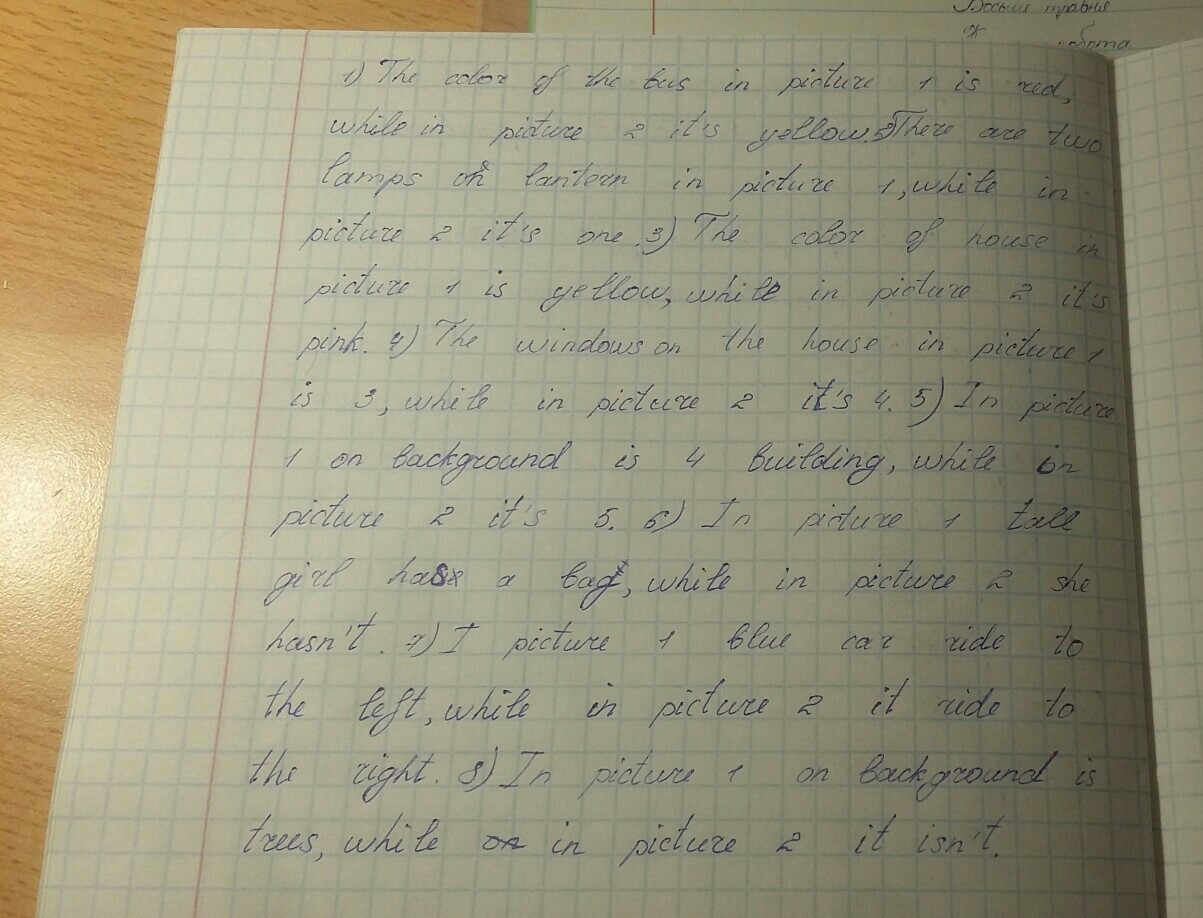 Восьме травня
1) The color of the bus in picture 1 is red,
while in picture 2 it's yellow. 2) There are two
lamps on lantern in picture 1, while in
picture 2 it's one. 3) The color of house in
picture 1 is yellow, while in picture 2 it's
pink. 4) The windows on the house in picture 1
is 3, while in picture 2 it's 4. 5) In picture
1 on background is 4 building, while in
picture 2 it's 5. 6) In picture 1 tall
girl has a bag, while in picture 2 she
hasn't. 7) I picture 1 blue car ride to
the left, while in picture 2 it ride to
the right. 8) In picture 1 on background is
trees, while in picture 2 it isn't.